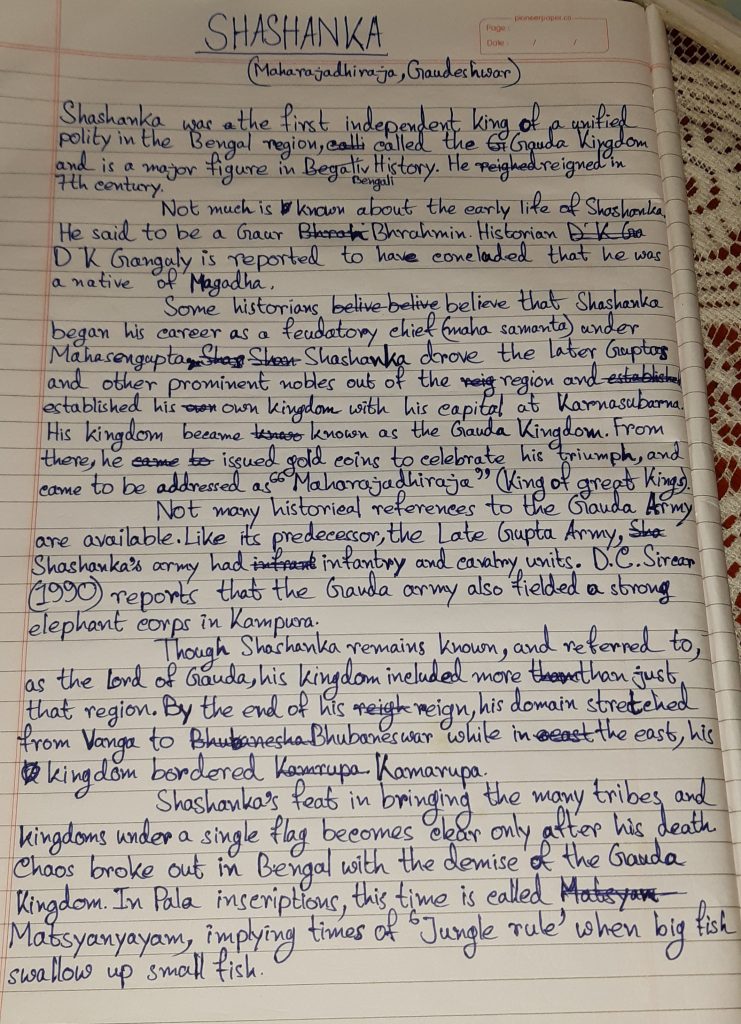 pioneerpaper.co
Page :
Date : / /
SHASHANKA
(Maharajadhiraja, Gaudeshwar)
Shashanka was the first independent king of a unified
polity in the Bengal region, called the Gauda Kingdom
and is a major figure in Bengali History. He reigned in
7th century.
Not much is known about the early life of Shashanka.
He said to be a Gaur Bhrahmin. Historian
D K Gangaly is reported to have concluded that he was
a native of Magadha.
Some historians believe that Shashanka
began his career as a feudatory chief (maha samanta) under
Mahasengupta. Shashanka drove the later Guptas
and other prominent nobles out of the region and
established his own kingdom with his capital at Karnasubarna.
His kingdom became known as the Gauda Kingdom. From
there, he issued gold coins to celebrate his triumph, and
came to be addressed as "Maharajadhiraja" (King of great Kings).
Not many historical references to the Gauda Army
are available. Like its predecessor, the Late Gupta Army,
Shashanka's army had infantry and cavalry units. D.C. Sircar
(1990) reports that the Gauda army also fielded a strong
elephant corps in Kampura.
Though Shashanka remains known, and referred to,
as the lord of Gauda, his kingdom included more than just
that region. By the end of his reign, his domain stretched
from Vanga to Bhubaneswar while in the east, his
kingdom bordered Kamarupa.
Shashanka's feat in bringing the many tribes and
kingdoms under a single flag becomes clear only after his death
Chaos broke out in Bengal with the demise of the Gauda
Kingdom. In Pala inscriptions, this time is called
Matsyanyayam, implying times of 'Jungle rule' when big fish
swallow up small fish.